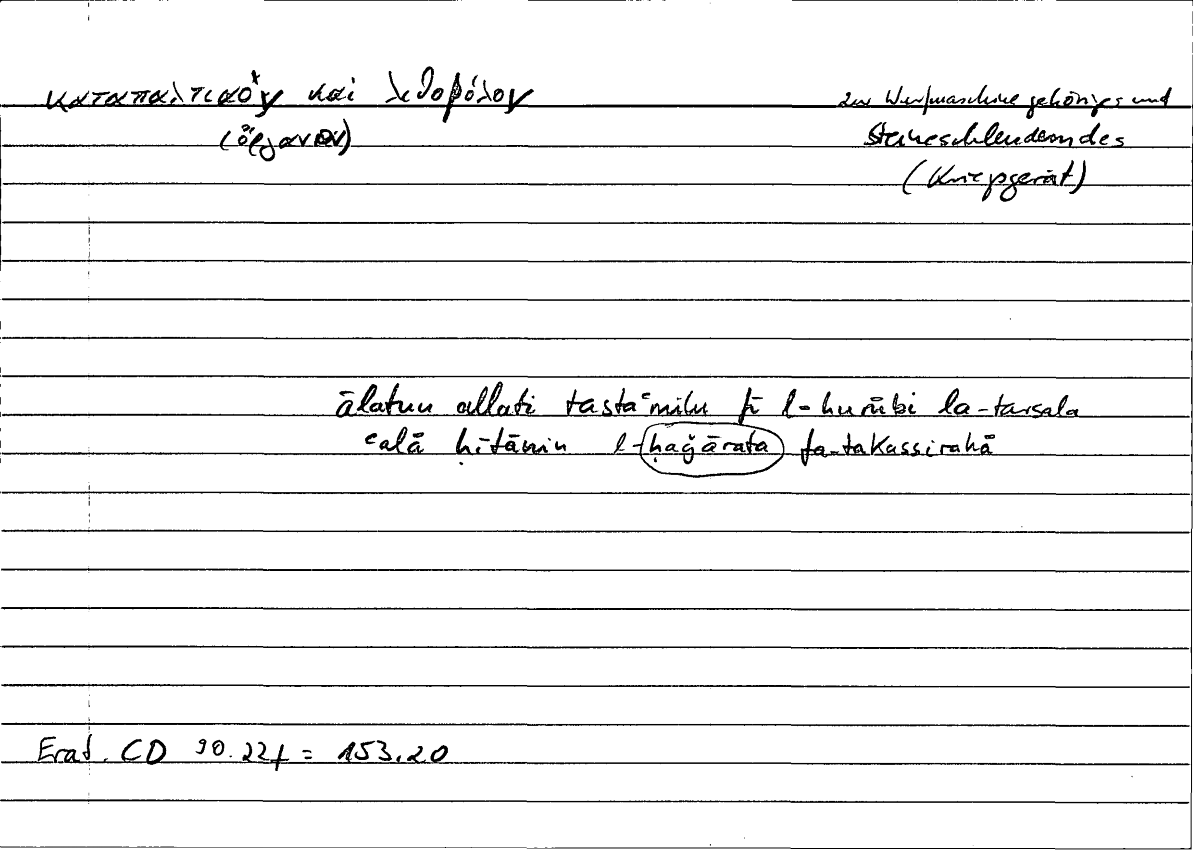 καταπαλτικὸν καὶ λιθοβόλον
(ὄργανον)
zur Wurfmaschine gehöriges und
Steineschleuderndes
(Kriegsgerät)
ālatun allati tastaʿmilu fī l-ḥurūbi la-tarsala
ʿalā ḥīṭāmin l-ḥaǧārata fa-takassirahā
Erat. CD 90.22f = 153.20